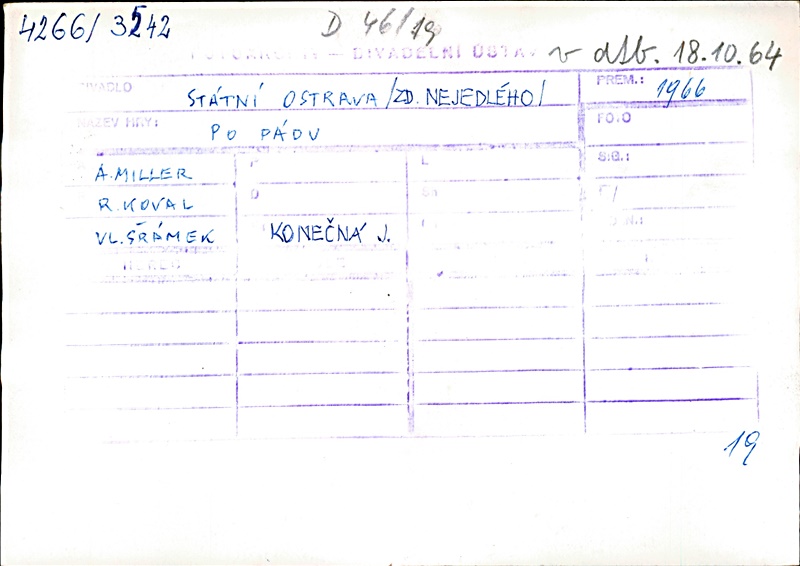 4266/3542
D 46/19
FOTOARCHIV — DIVADELNÍ ÚSTAV
v alb. 18.10.64
DIVADLO
STÁTNÍ OSTRAVA /ZD. NEJEDLÉHO/
PREM.:
1966
NÁZEV HRY:
PO PÁDU
FOTO
A. MILLER
R
L
SIG.:
R. KOVAL
D
VL. ŠRÁMEK
KONEČNÁ J.
19